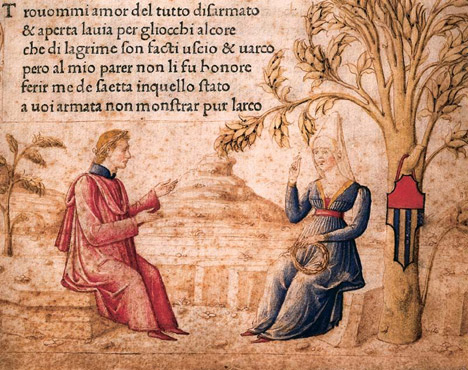 Trovommi amor del tutto disarmato
& aperta lauia per gliocchi alcore
che di lagrime son facti uscio & uarco
pero al mio parer non li fu honore
ferir me de saetta inquello stato
a uoi armata non monstrar pur larco